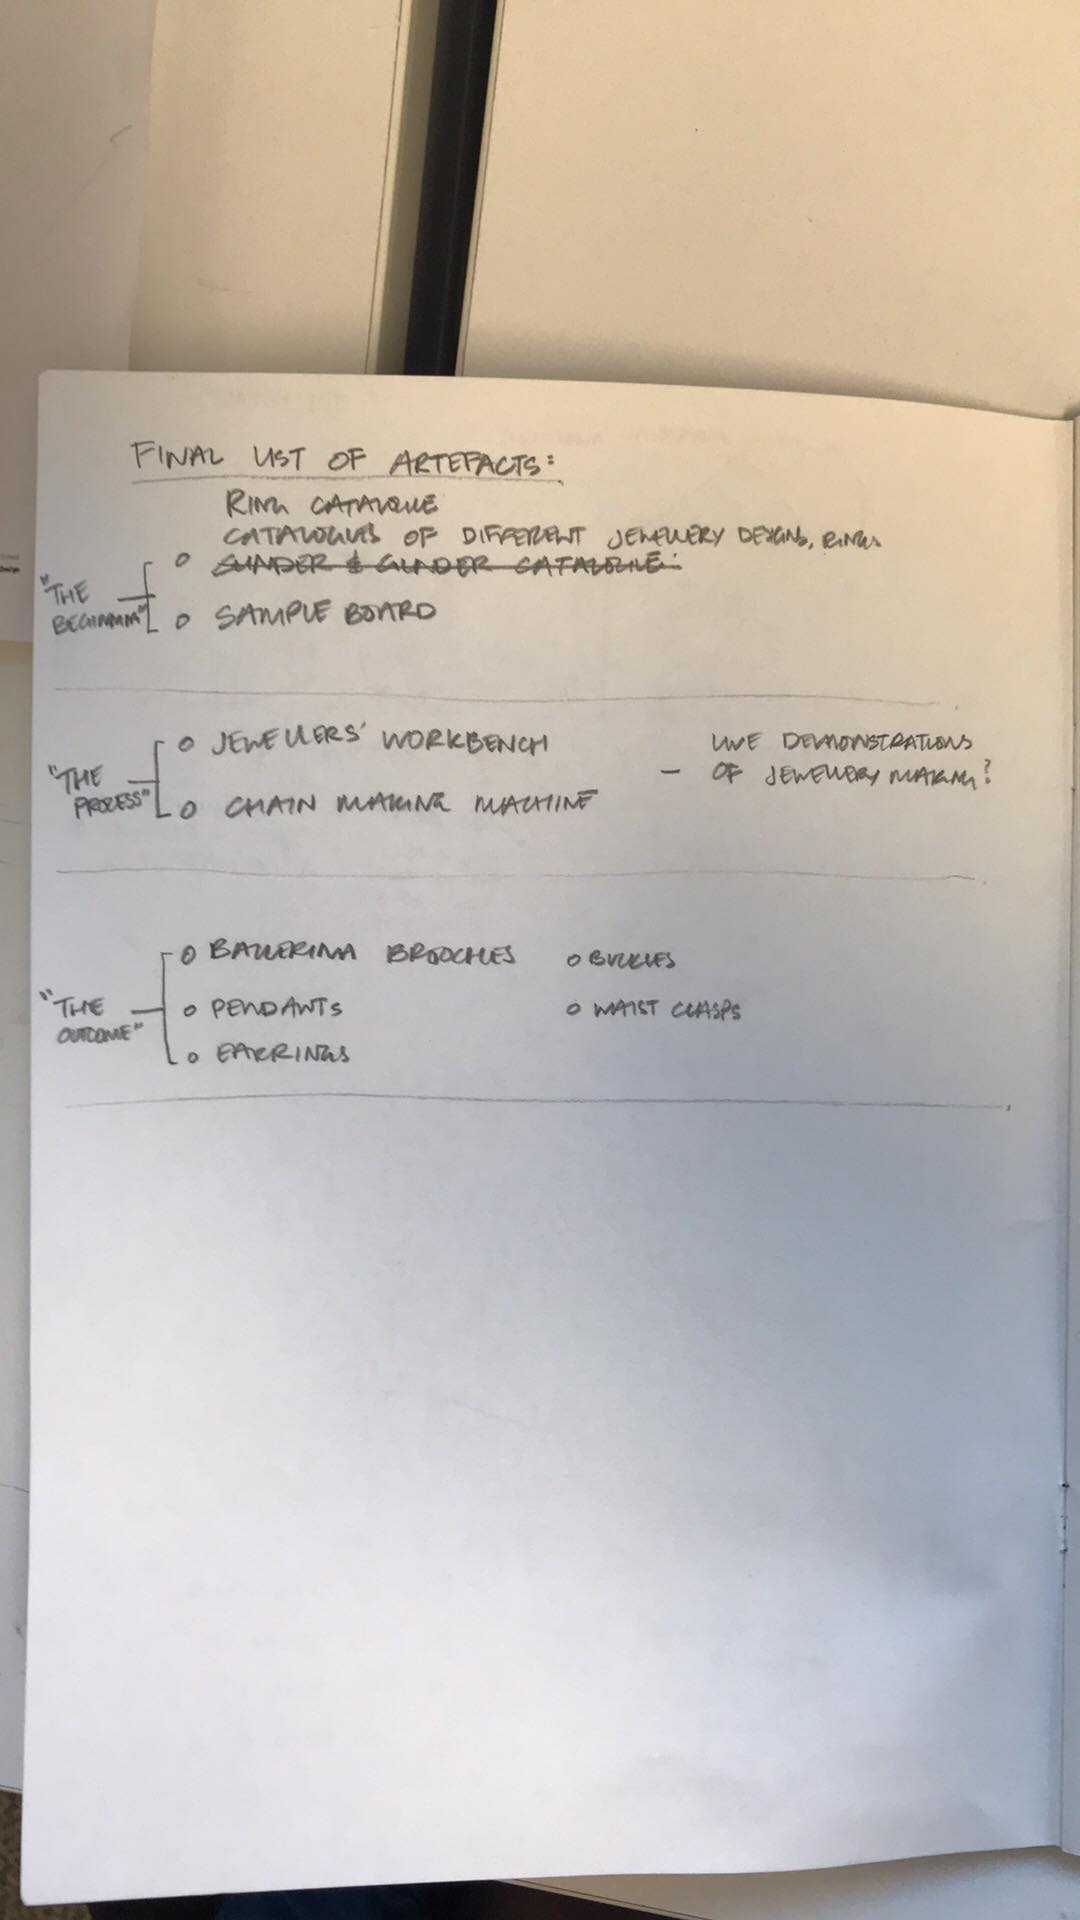 FINAL LIST OF ARTEFACTS:
RING CATALOGUE
CATALOGUES OF DIFFERENT JEWELLERY DESIGNS, RINGS
o & CATALOGUE
"THE
BEGINNING"
o SAMPLE BOARD
o JEWELLERS' WORKBENCH
"THE
PROCESS"
o CHAIN MAKING MACHINE
LIVE DEMONSTRATIONS
- OF JEWELLERY MAKING?
o BALLERINA BROOCHES
o BUCKLES
"THE
OUTCOME"
o PENDANTS
o WAIST CLASPS
o EARRINGS